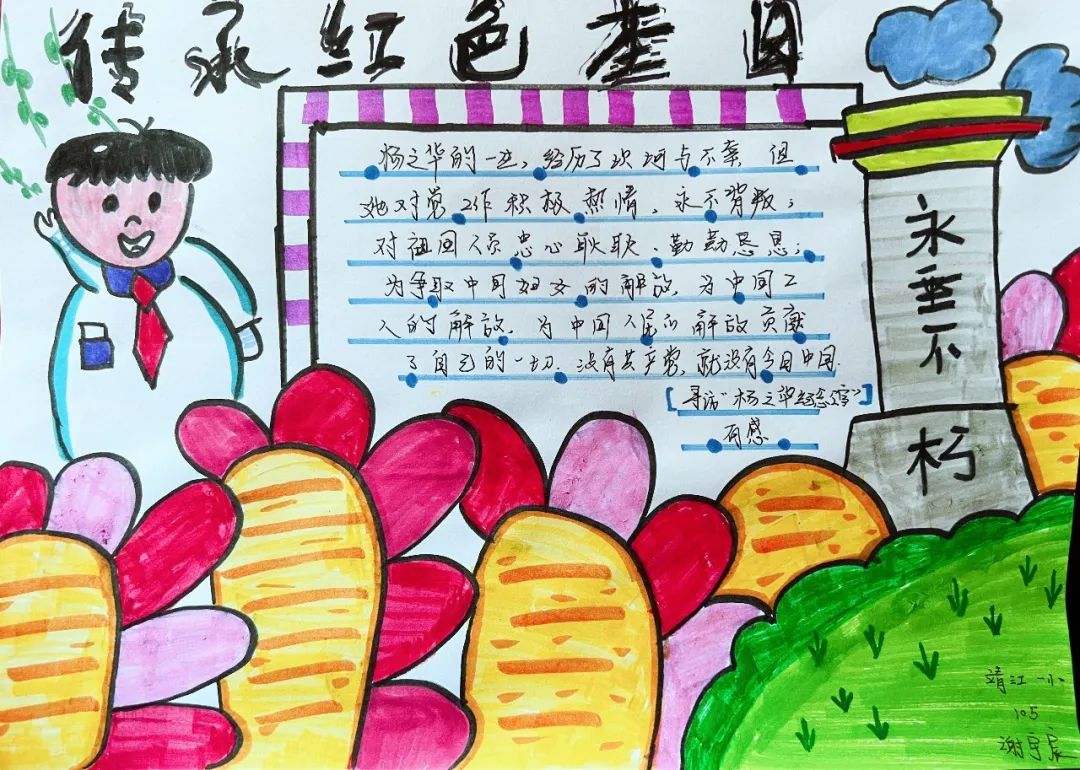 传承红色基因
杨之华的一生,经历了坎坷与不幸,但
她对党工作积极热情,永不背叛;
对祖国人民忠心耿耿、勤勤恳恳;
为争取中国妇女的解放,为中国工
人的解放,为中国人民的解放贡献
了自己的一切.没有共产党,就没有今日中国.
[寻访“杨之华纪念馆”]
有感
永垂不
朽
靖江一小
105
谢宇辰